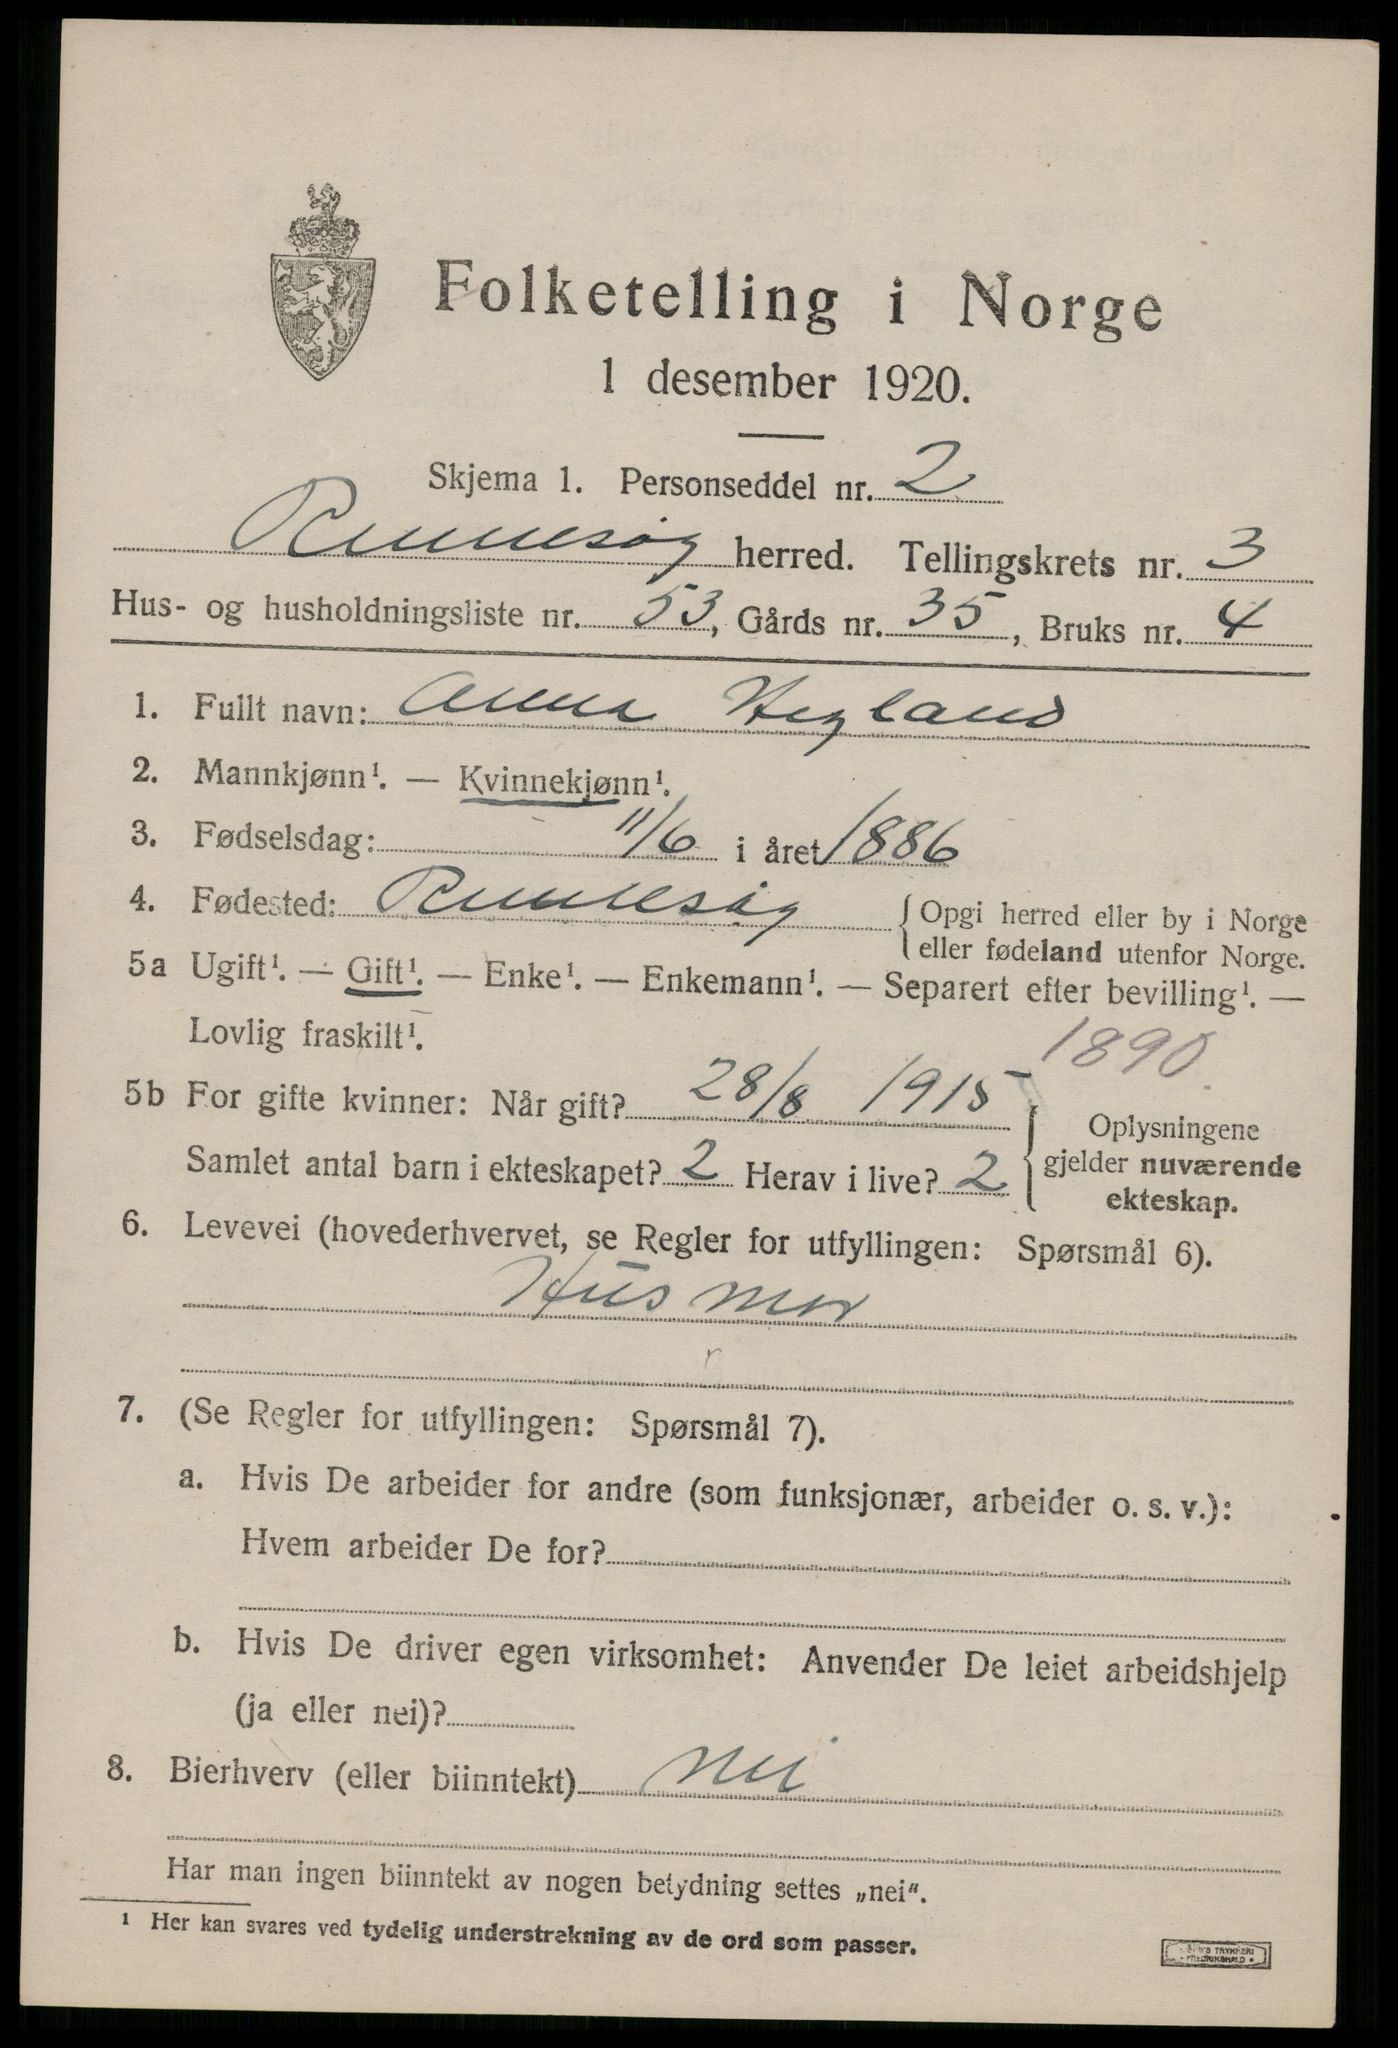 Folketelling i Norge
1 desember 1920.
Skjema 1. Personseddel nr. 2
Rennesøy herred. Tellingskrets nr. 3
Hus- og husholdningsliste nr. 53, Gårds nr. 35, Bruks nr. 4
1. Fullt navn: Anna Hegland
2. Mannkjønn¹. — Kvinnekjønn¹.
3. Fødselsdag: 11/6 i året 1886
4. Fødested: Rennesøy { Opgi herred eller by i Norge
eller fødeland utenfor Norge.
5a Ugift¹. — Gift¹. — Enke¹. — Enkemann¹. — Separert efter bevilling¹. —
Lovlig fraskilt¹.
1890.
5b For gifte kvinner: Når gift? 28/8 1915
Samlet antal barn i ekteskapet? 2 Herav i live? 2
{ Oplysningene
gjelder nuværende
ekteskap.
6. Levevei (hovederhvervet, se Regler for utfyllingen: Spørsmål 6).
Husmor
r
7. (Se Regler for utfyllingen: Spørsmål 7).
a. Hvis De arbeider for andre (som funksjonær, arbeider o. s. v.):
Hvem arbeider De for?
b. Hvis De driver egen virksomhet: Anvender De leiet arbeidshjelp
(ja eller nei)?
8. Bierhverv (eller biinntekt) nei
Har man ingen biinntekt av nogen betydning settes „nei“.
¹ Her kan svares ved tydelig understrekning av de ord som passer.
TRYKKERI
FREDRIKSHALD